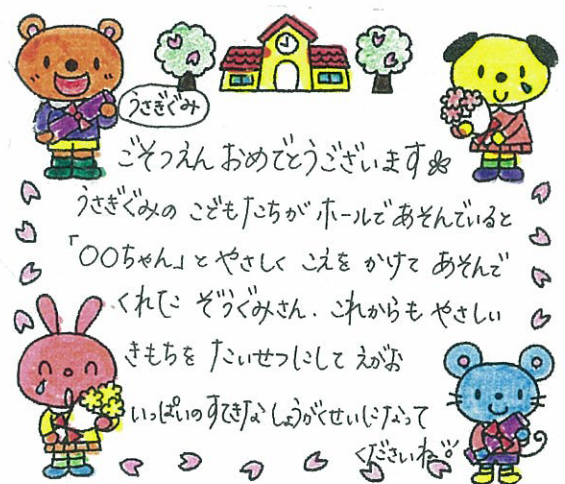 うさぎぐみ
ごそつえん おめでとうございます
うさぎぐみの こどもたちが ホールであそんでいると
「〇〇ちゃん」と やさしく こえを かけて あそんで
くれた ぞうぐみさん。これからも やさしい
きもちを たいせつにして えがお
いっぱいの すてきな しょうがくせいになって
くださいね